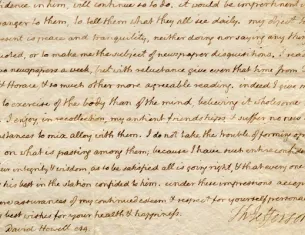 fidence in him, will continue so to do. it would be impertinent in
ranger to them, to tell them what they all see daily. my object
present is peace and tranquility, neither doing nor saying any thing
quoted, or to make me the subject of newspaper disquisitions. I read
two newspapers a week, but with reluctance give even that time from
d Horace, & so much other more agreeable reading. indeed I give more
to exercise of the body than of the mind, believing it wholesome
. I enjoy in recollection, my antient friendships, & suffer no new
mstances to mix alloy with them. I do not take the trouble of forming op
on what is passing among them, because I have such entire confid
eir integrity & wisdom, as to be satisfied all is going right, & that every one
his best in the station confided to him. under these impressions accept
ere assurances of my continued esteem & respect for yourself personal
y best wishes for your health & happiness.
Th Jefferson
David Howell esq.